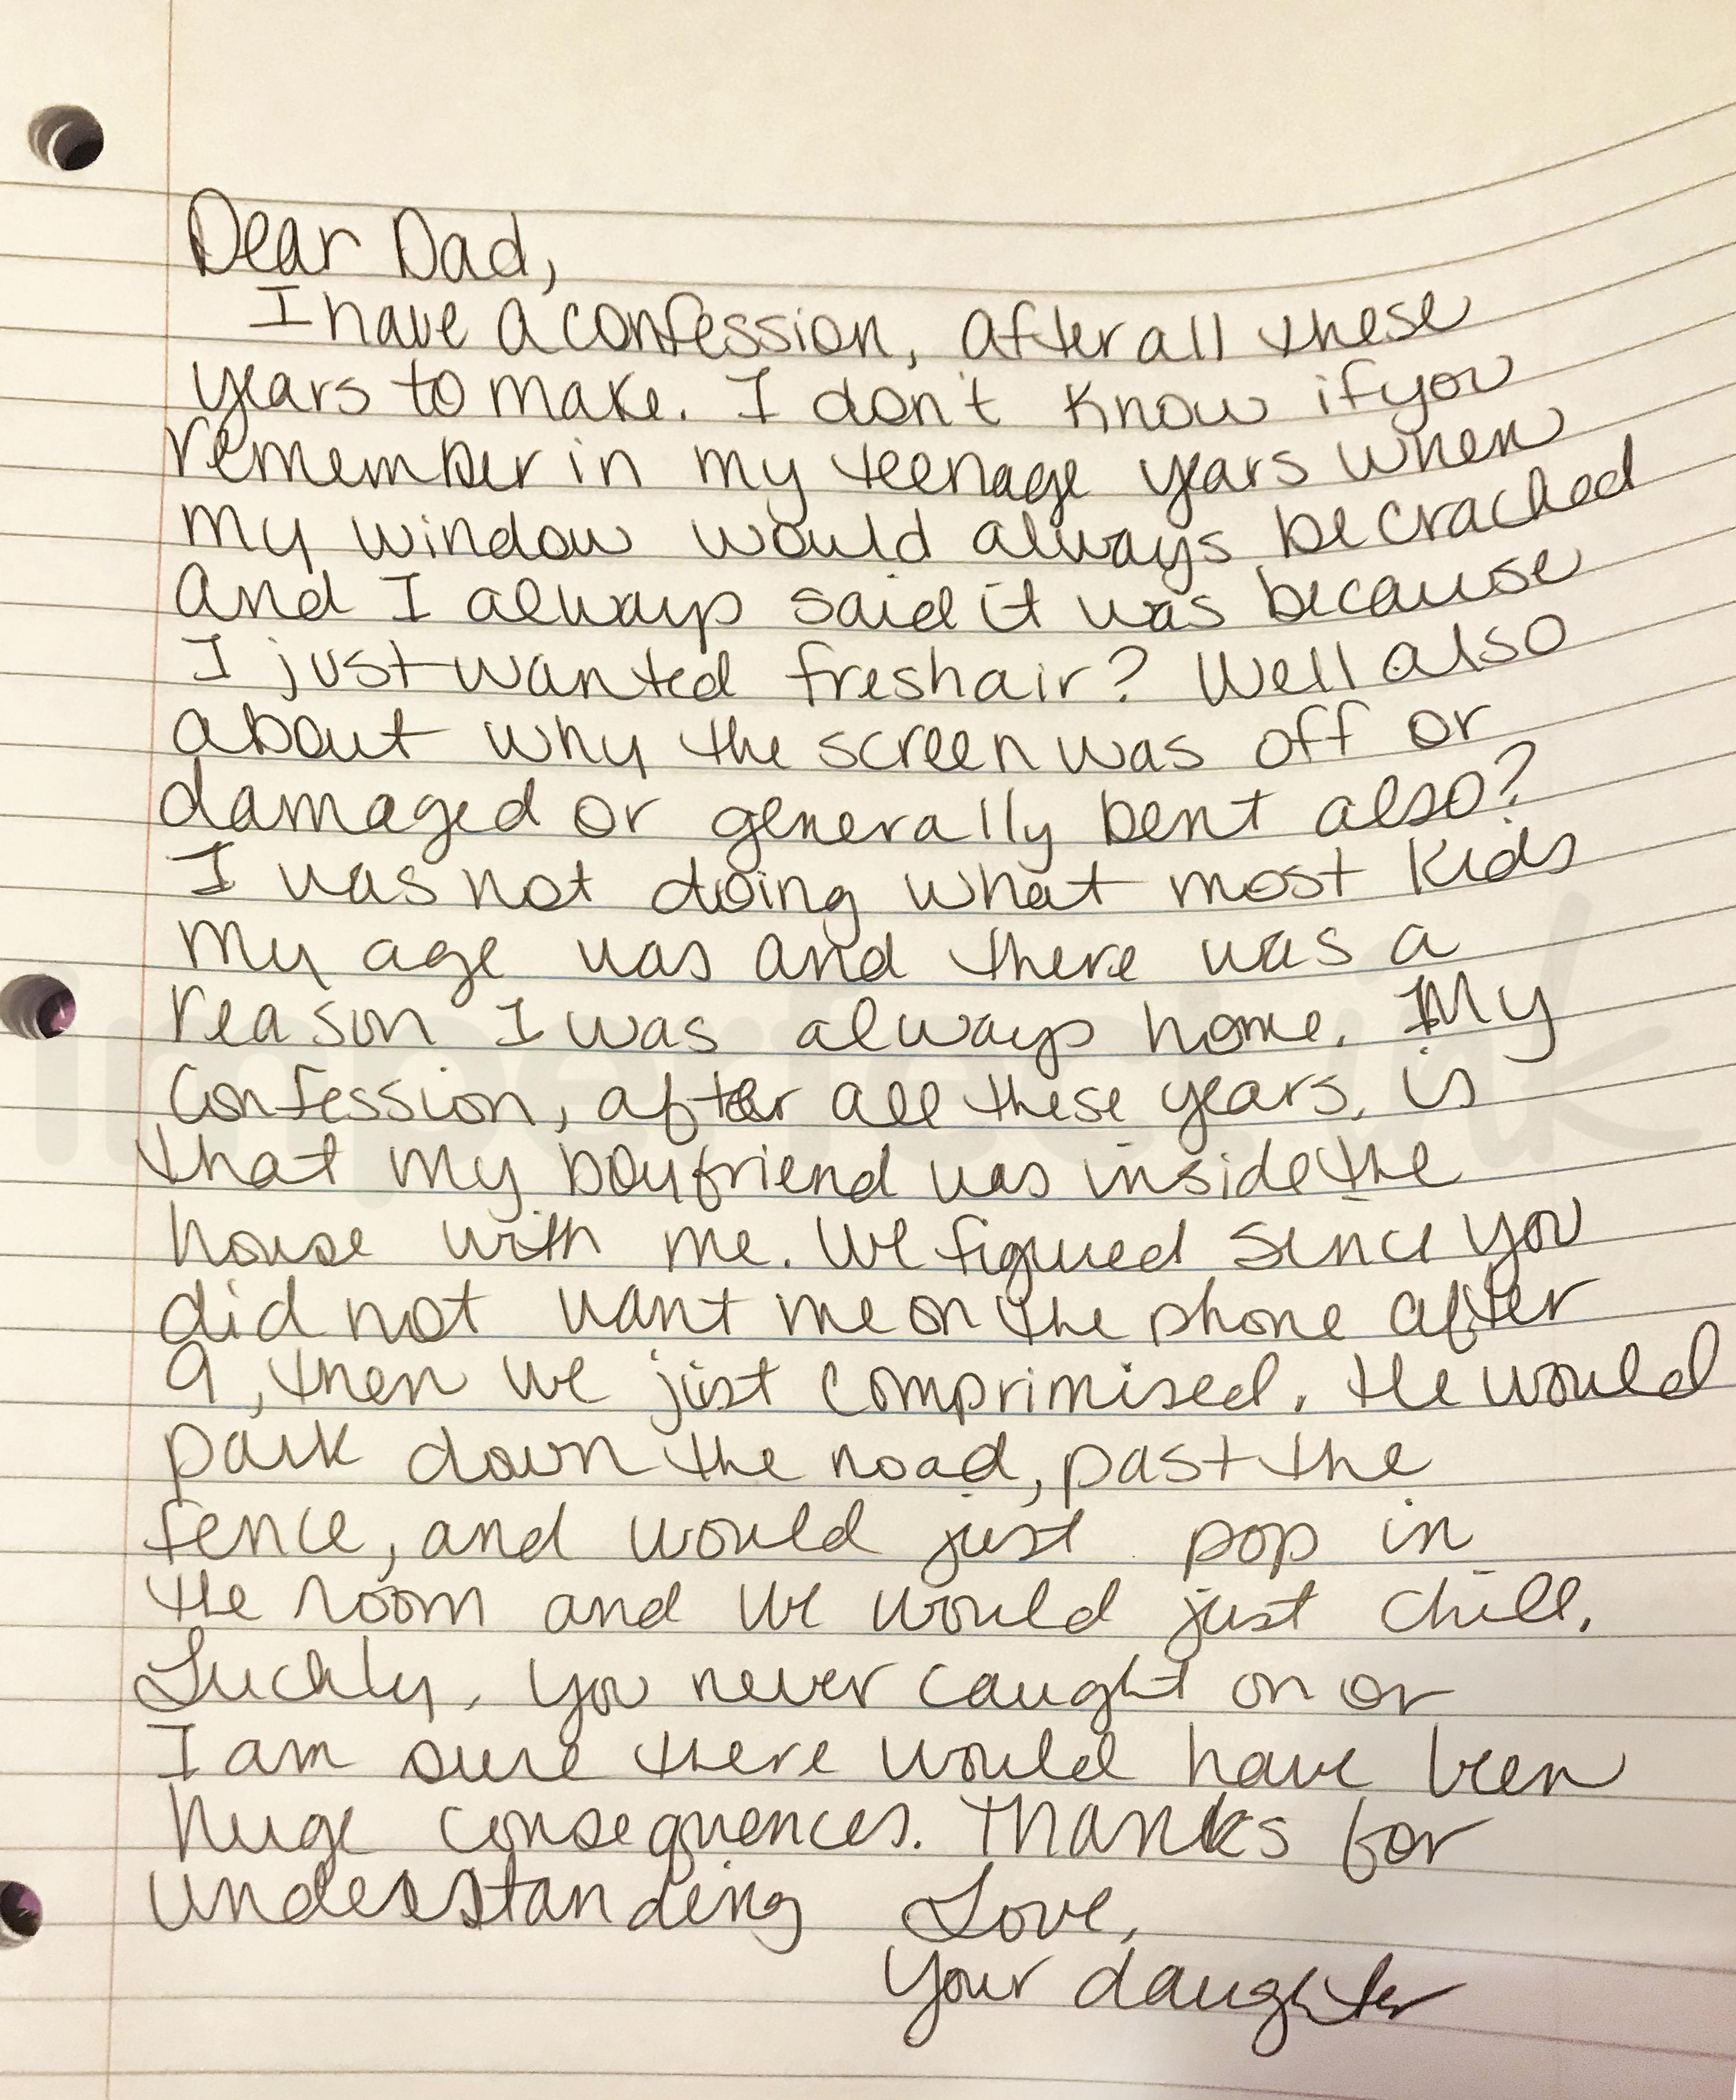 Dear Dad,
I have a confession, after all these
years to make. I don't know if you
remember in my teenage years when
my window would always be cracked
and I always said it was because
I just wanted fresh air? Well also
about why the screen was off or
damaged or generally bent also?
I was not doing what most kids
my age was and there was a
reason I was always home. My
confession, after all these years, is
that my boyfriend was inside the
house with me. We figured since you
did not want me on the phone after
9, then we just comprimised. He would
park down the road, past the
fence, and would just pop in
the room and we would just chill.
Luckly, you never caught on or
I am sure there would have been
huge consequences. Thanks for
understanding Love,
your daughter